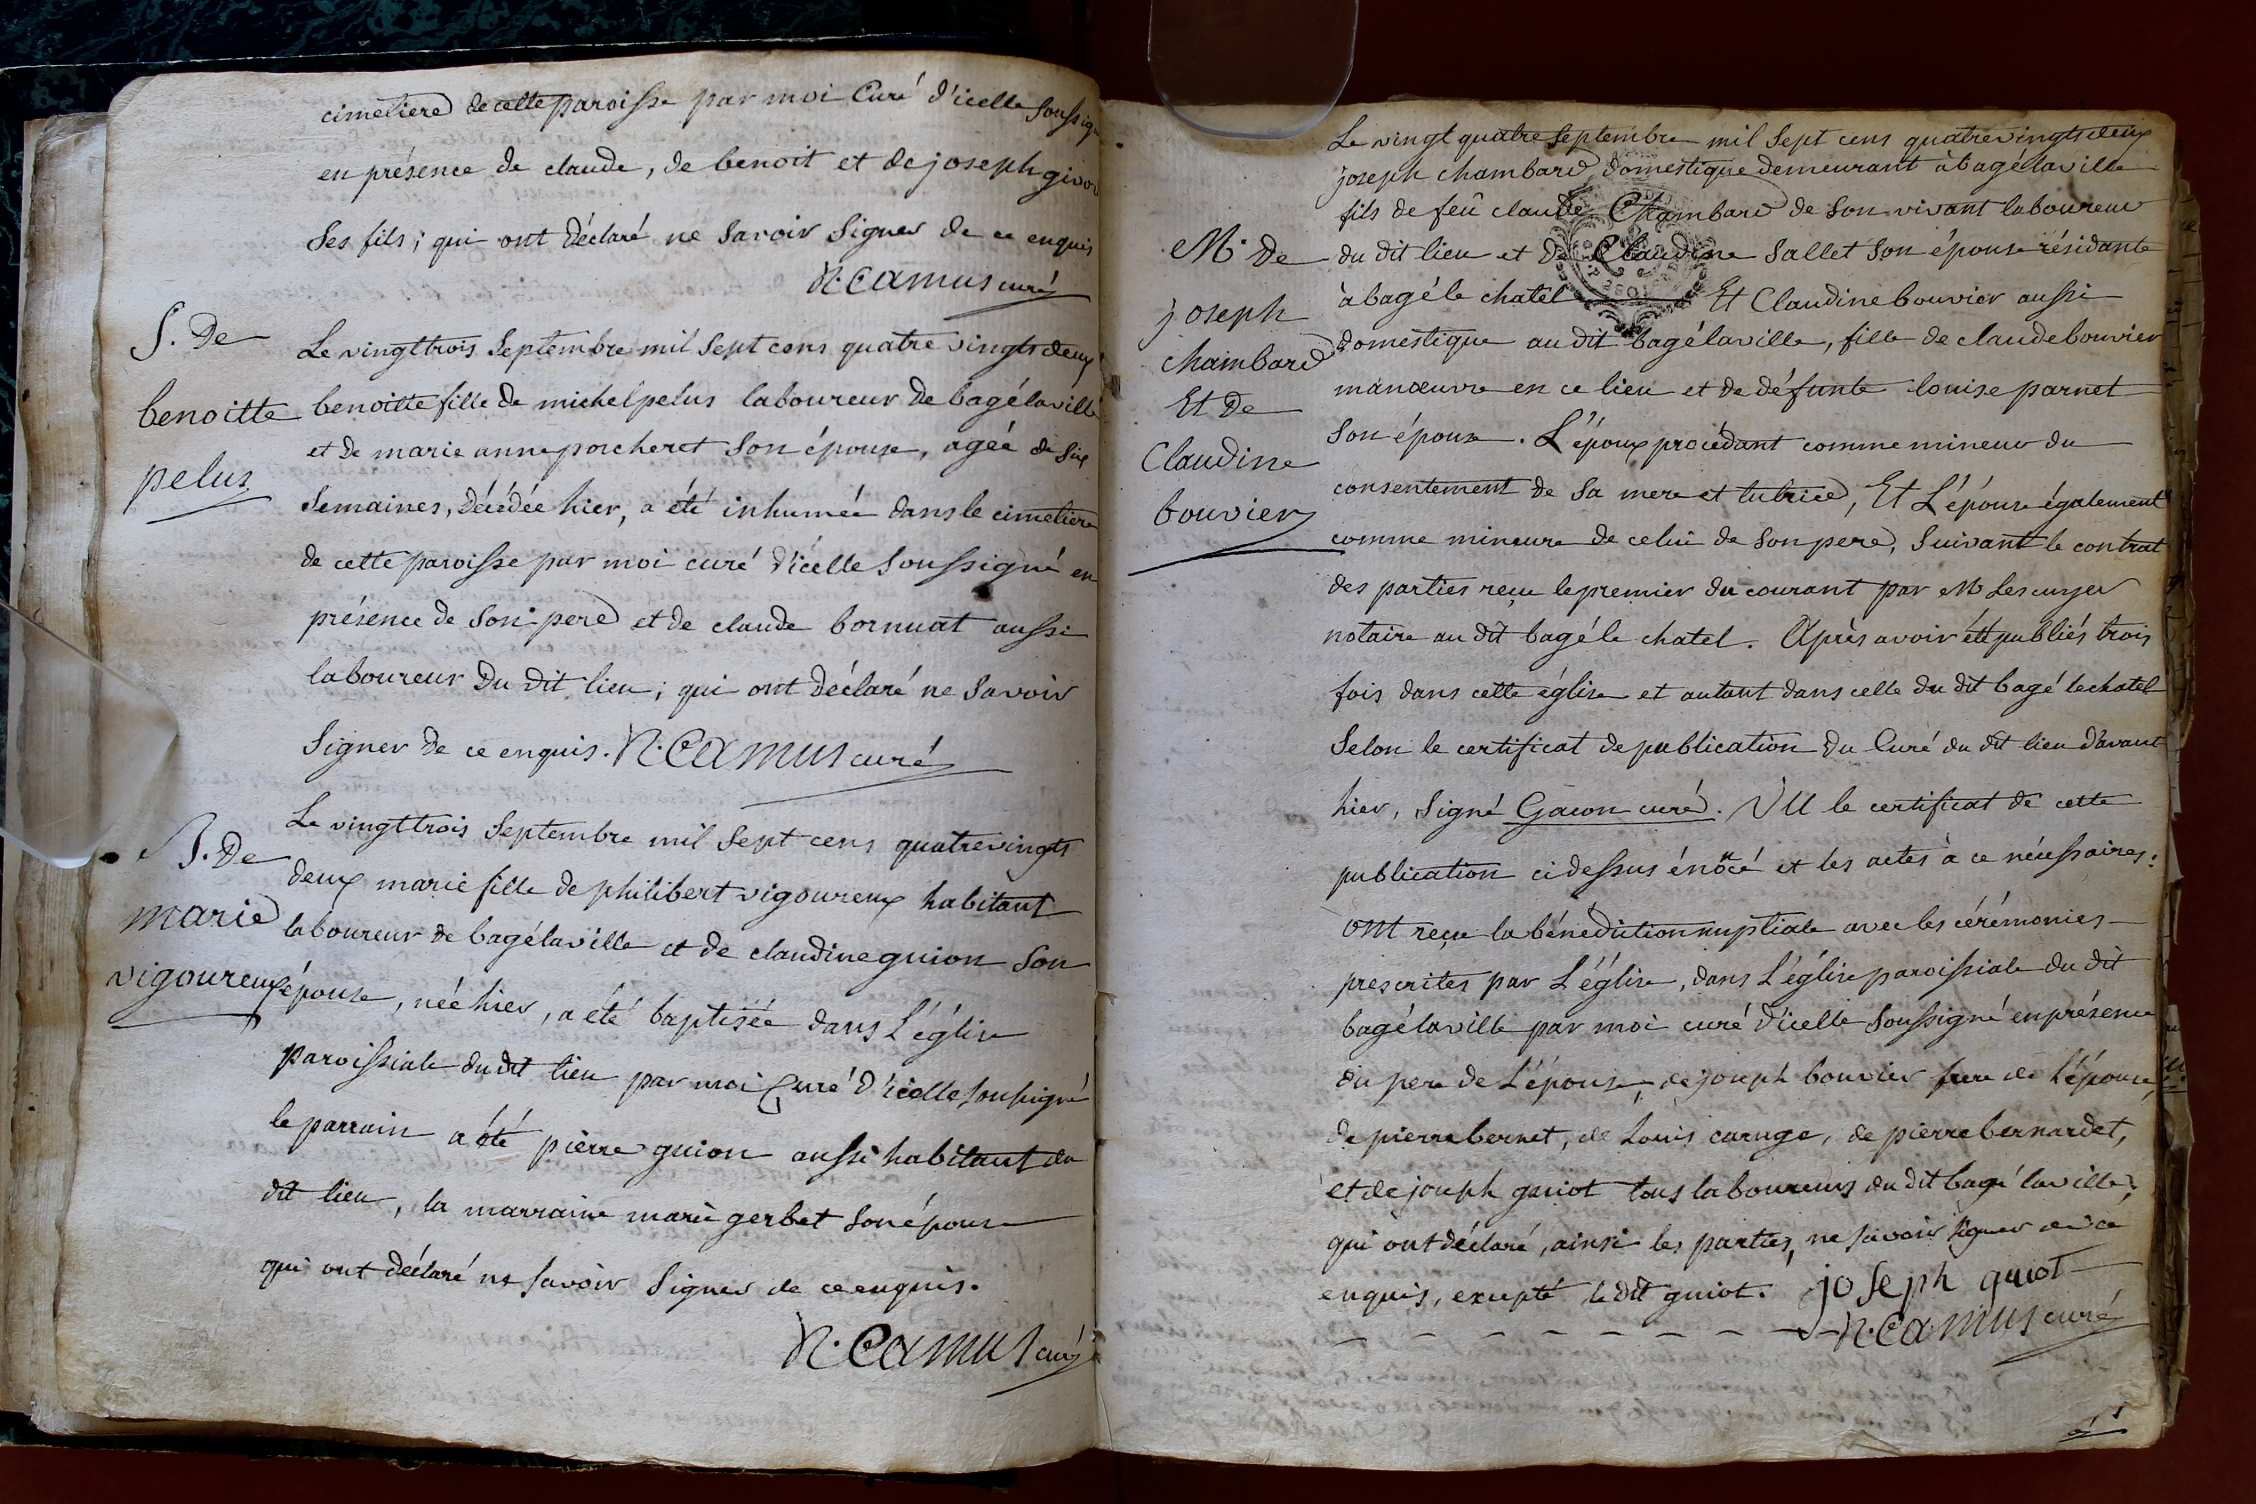 cimetiere de cette paroisse par moi Curé d'icelle soussigné
en présence de claude, de benoit et de joseph givor
Ses fils ; qui ont déclaré ne savoir signer de ce enquis
N. CAMUS curé
S. De
benoitte
pelus
Le vingt trois Septembre mil Sept cens quatre vingts deux
benoitte fille de michel pelus laboureur de bagélaville
et de marie anne porcheret son épouse, agée de six
Semaines, décédée hier, a été inhumée dans le cimetiere
de cette paroisse par moi curé d'icelle soussigné en
présence de son pere et de claude bornuat aussi
laboureur du dit lieu ; qui ont déclaré ne savoir
signer de ce enquis. N. CAMUS curé
B. De
marie
vigoureux
Le vingt trois Septembre mil Sept cens quatre vingts
deux marie fille de philibert vigoureux habitant
laboureur de bagélaville et de claudine guion son
épouse, née hier, a été baptisée dans L'église
paroissiale du dit lieu par moi Curé d'icelle soussigné
le parrain a été pierre guion aussi habitant du
dit lieu, la marraine marie gerbet son épouse
qui ont déclaré ne savoir signer de ce enquis.
N. CAMUS curé
M. De
joseph
chambard
Et De
Claudine
bouvier
Le vingt quatre Septembre mil Sept cens quatre vingts deux
joseph chambard, domestique demeurant à bagélaville
fils de feû claude Chambard de son vivant laboureur
du dit lieu et de Claudine Sallet son épouse résidante
à bagé le chatel Et Claudine bouvier aussi
domestique au dit bagélaville, fille de claude bouvier
manœuvre en ce lieu et de défunte louise parnet
son épouse. L'époux procédant comme mineur du
consentement de sa mere et tutrice, Et L'épouse également
comme mineure de celui de son pere, suivant le contrat
des parties reçu le premier du courant par Me Lescuyer
notaire au dit bagé le chatel. Après avoir été publiés trois
fois dans cette église et autant dans celle du dit bagé le chatel
Selon le certificat de publication du Curé du dit lieu d'avant
hier, signé Gacon curé. VU le certificat de cette
publication ci dessus énoncé et les actes à ce nécessaires :
ont reçu la bénédiction nuptiale avec les cérémonies
prescrites par L'église, dans L'église paroissiale du dit
bagélaville par moi curé d'icelle soussigné en présence
du pere de L'épouse, de joseph bouvier frere de L'épouse,
de pierre bernet, de Louis caruge, de pierre bernardet,
et de joseph guiot tous laboureurs du dit bagé laville ;
qui ont déclaré, ainsi les parties, ne savoir signer de ce
enquis, excepté le dit guiot. joseph guiot
N. CAMUS curé